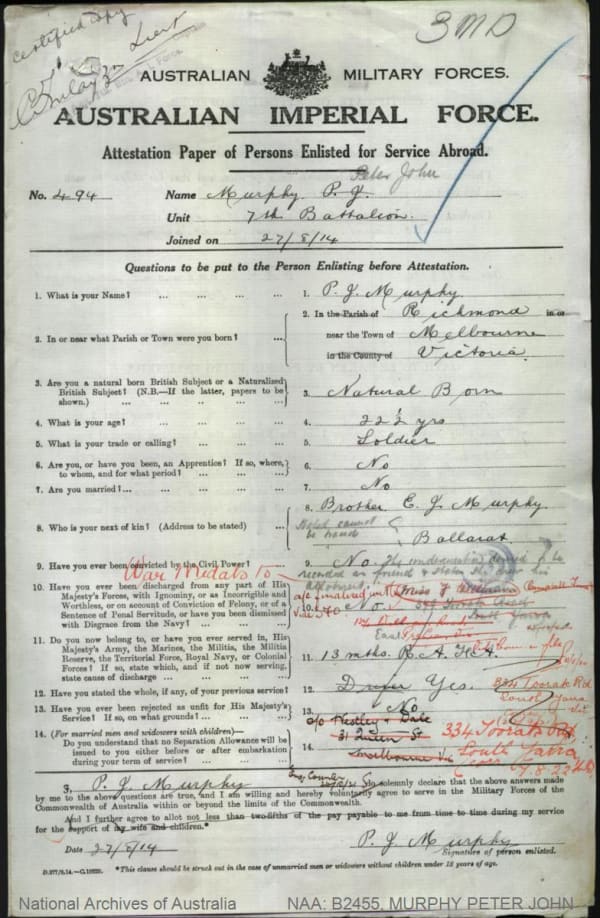 certified copy
Lieut
3MD
AUSTRALIAN MILITARY FORCES.
AUSTRALIAN IMPERIAL FORCE.
Attestation Paper of Persons Enlisted for Service Abroad.
Peter John
No. 494 Name Murphy P. J.
Unit 7th Battalion.
Joined on 27/8/14
Questions to be put to the Person Enlisting before Attestation.
1. What is your Name? ... ... ... ... 1. P. J. Murphy
2. In or near what Parish or Town were you born? ... 2. In the Parish of Richmond in or
near the Town of Melbourne
in the County of Victoria
3. Are you a natural born British Subject or a Naturalized
British Subject? (N.B.—If the latter, papers to be
shown.) 3. Natural Born
4. What is your age? 4. 22½ yrs
5. What is your trade or calling? 5. Soldier
6. Are you, or have you been, an Apprentice? If so, where,
to whom, and for what period? 6. No
7. Are you married? 7. No
8. Who is your next of kin? (Address to be stated) 8. Brother E. J. Murphy
Ballarat
9. Have you ever been convicted by the Civil Power? 9. No.
War Medals to
10. Have you ever been discharged from any part of His
Majesty's Forces, with Ignominy, or as Incorrigible and
Worthless, or on account of Conviction of Felony, or of a
Sentence of Penal Servitude, or have you been Dismissed
with Disgrace from the Navy? 10. No.
11. Do you now belong to, or have you ever served in, His
Majesty's Army, the Marines, the Militia, the Militia
Reserve, the Territorial Force, Royal Navy, or Colonial
Forces? If so, state which, and if not now serving,
state cause of discharge 11. 13 mths. R.A.G.A.
12. Have you stated the whole, if any, of your previous service? 12. Yes.
334 Toorak Rd
South Yarra
13. Have you ever been rejected as unfit for His Majesty's
Service? If so, on what grounds? 13. No
31 Queen St
334 Toorak Rd
14. (For married men and widowers with children)—
Do you understand that no Separation Allowance will be
issued to you either before or after embarkation
during your term of service? 14. Melbourne Vic
South Yarra
I, P. J. Murphy do solemnly declare that the above answers made
by me to the above questions are true, and I am willing and hereby voluntarily agree to serve in the Military Forces of the
Commonwealth of Australia within or beyond the limits of the Commonwealth.
And I further agree to allot not less than two-fifths of the pay payable to me from time to time during my service
for the support of my wife and children.*
Date 27/8/14 P. J. Murphy
Signature of person enlisted.
*This clause should be struck out in the case of unmarried men or widowers without children under 18 years of age.
National Archives of Australia NAA: B2455, MURPHY PETER JOHN